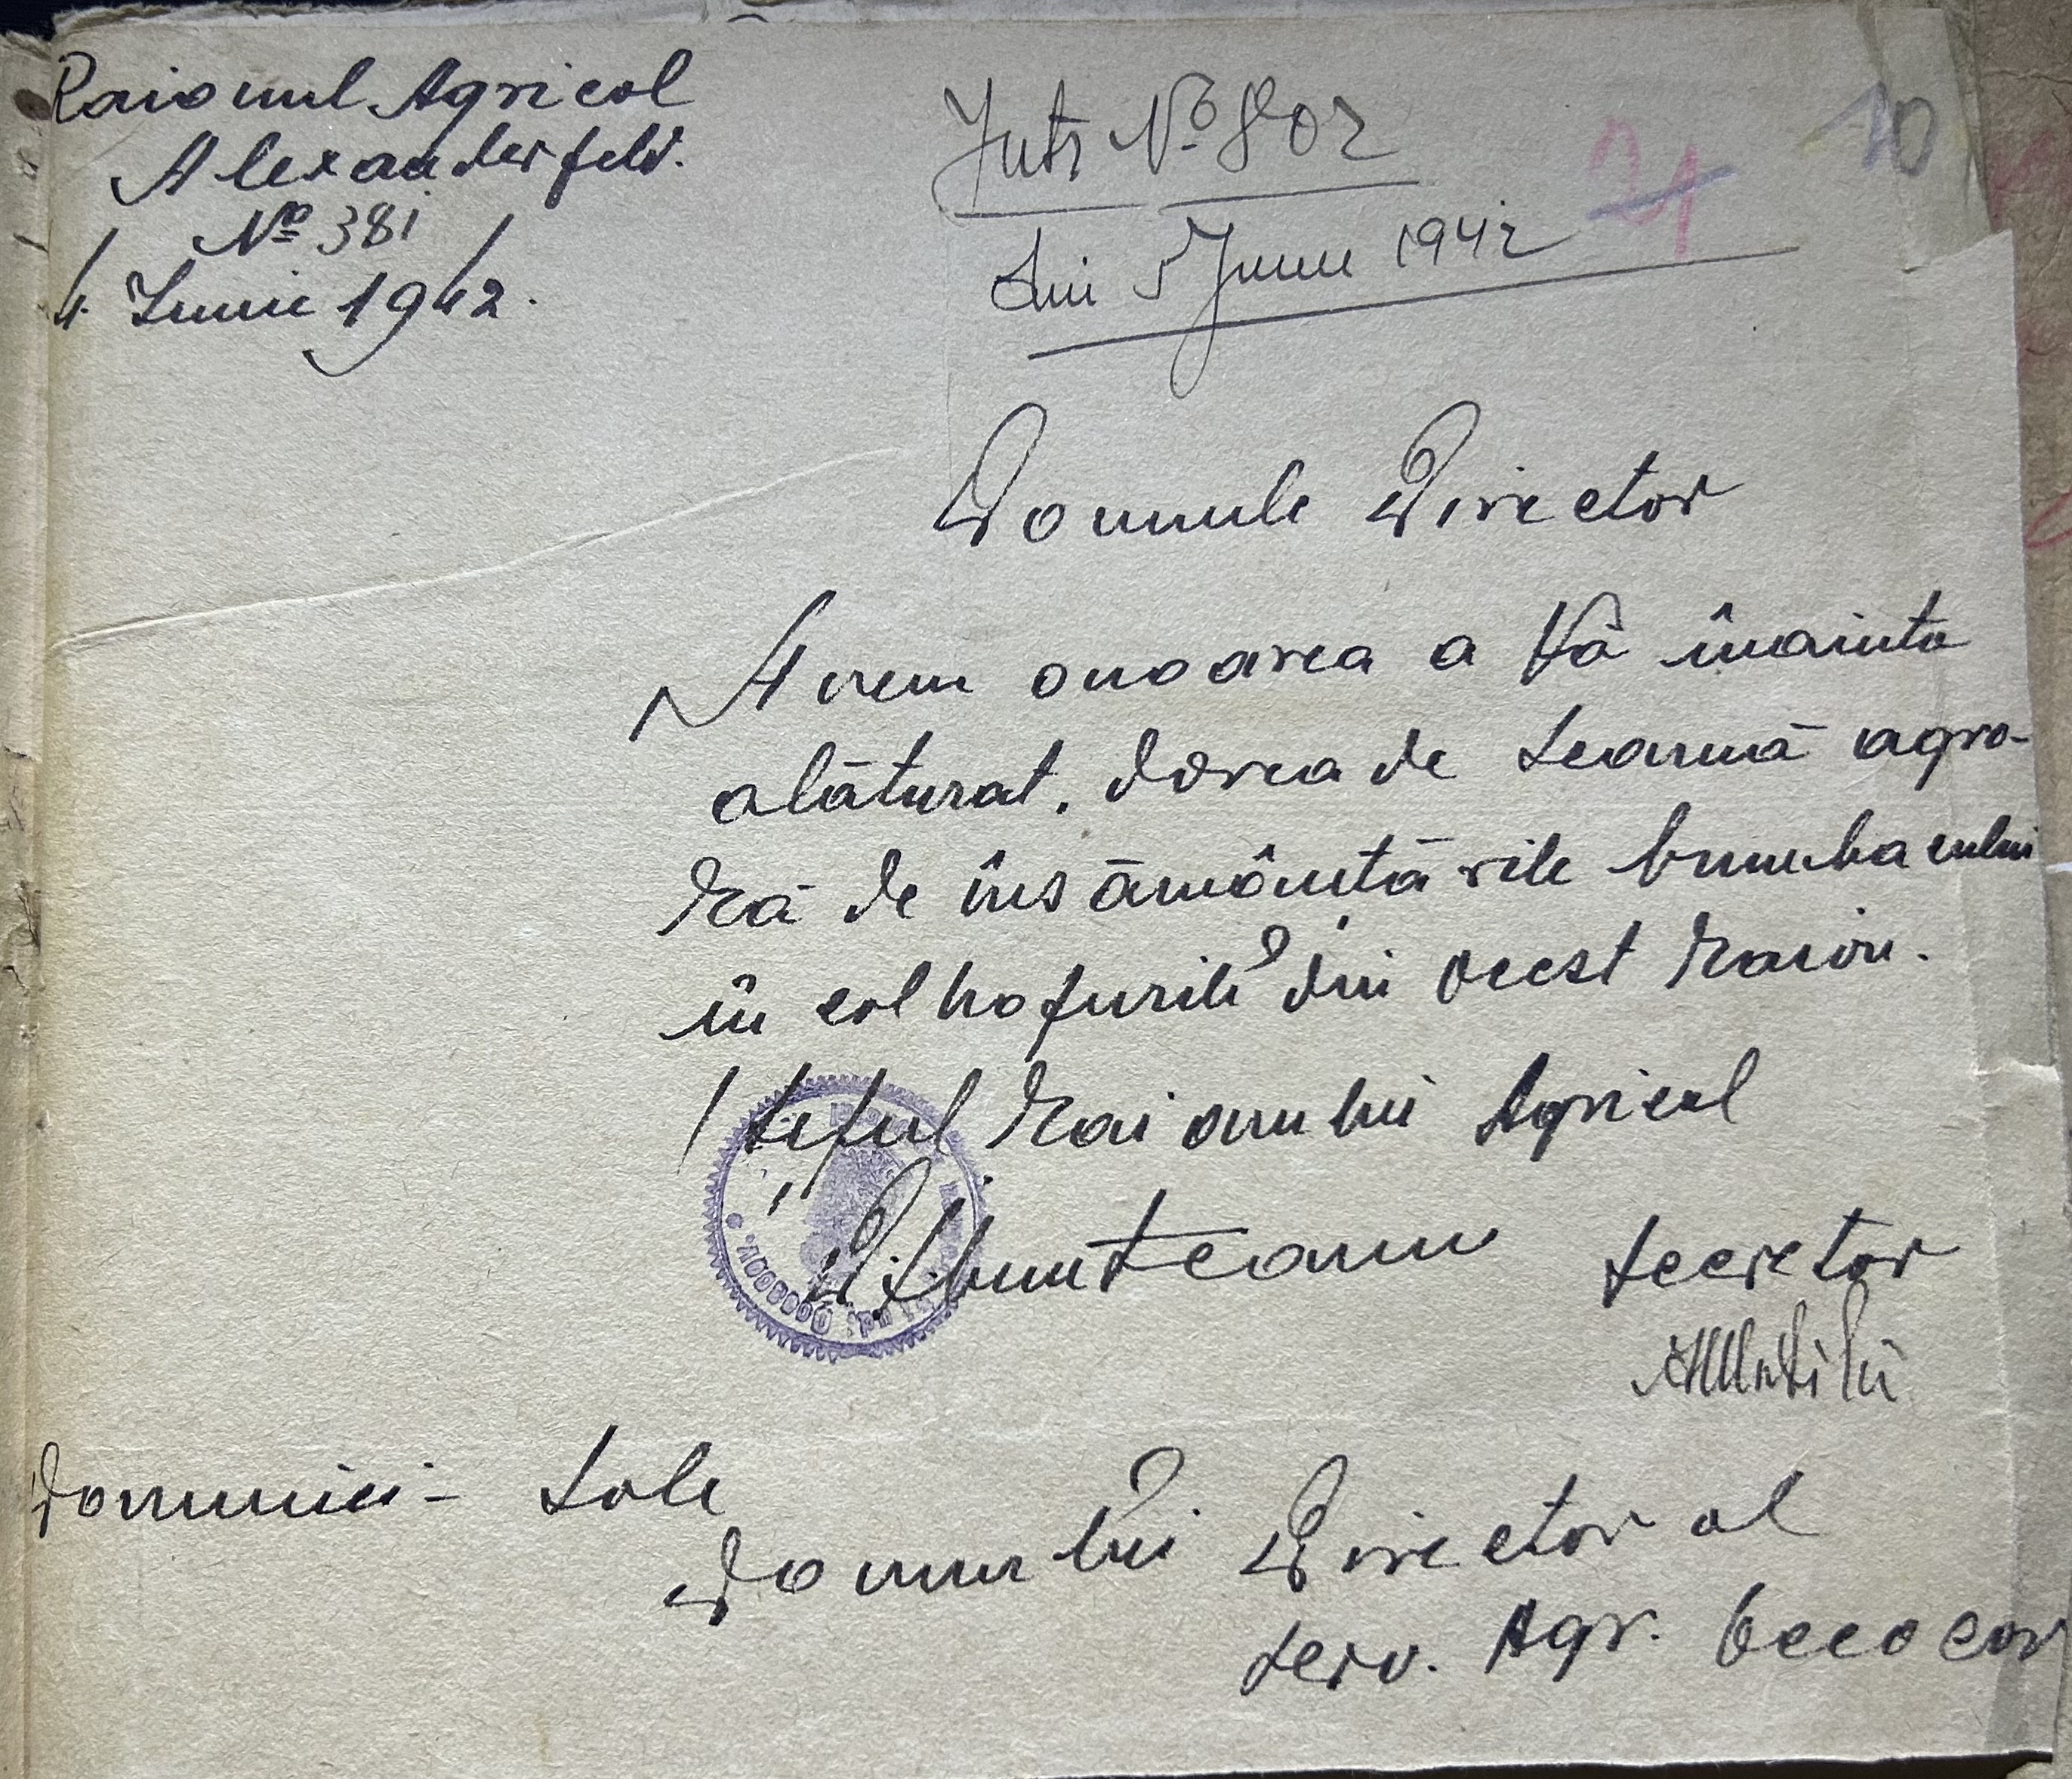 Raionul Agricol
Alexanderfeld.
No 381
4. Iunie 1942.
Intr No 802
din 5 Iunie 1942
21
10
Domnule Director
Avem onoarea a Vă înainta
alăturat. darea de seamă agro-
ră de însămânțările bumbacului
în colhozurile din acest raion.
Șeful Raionului Agricol
Munteanu
Secretar
Domniei-Sale
Domnului Director al
Serv. Agr.